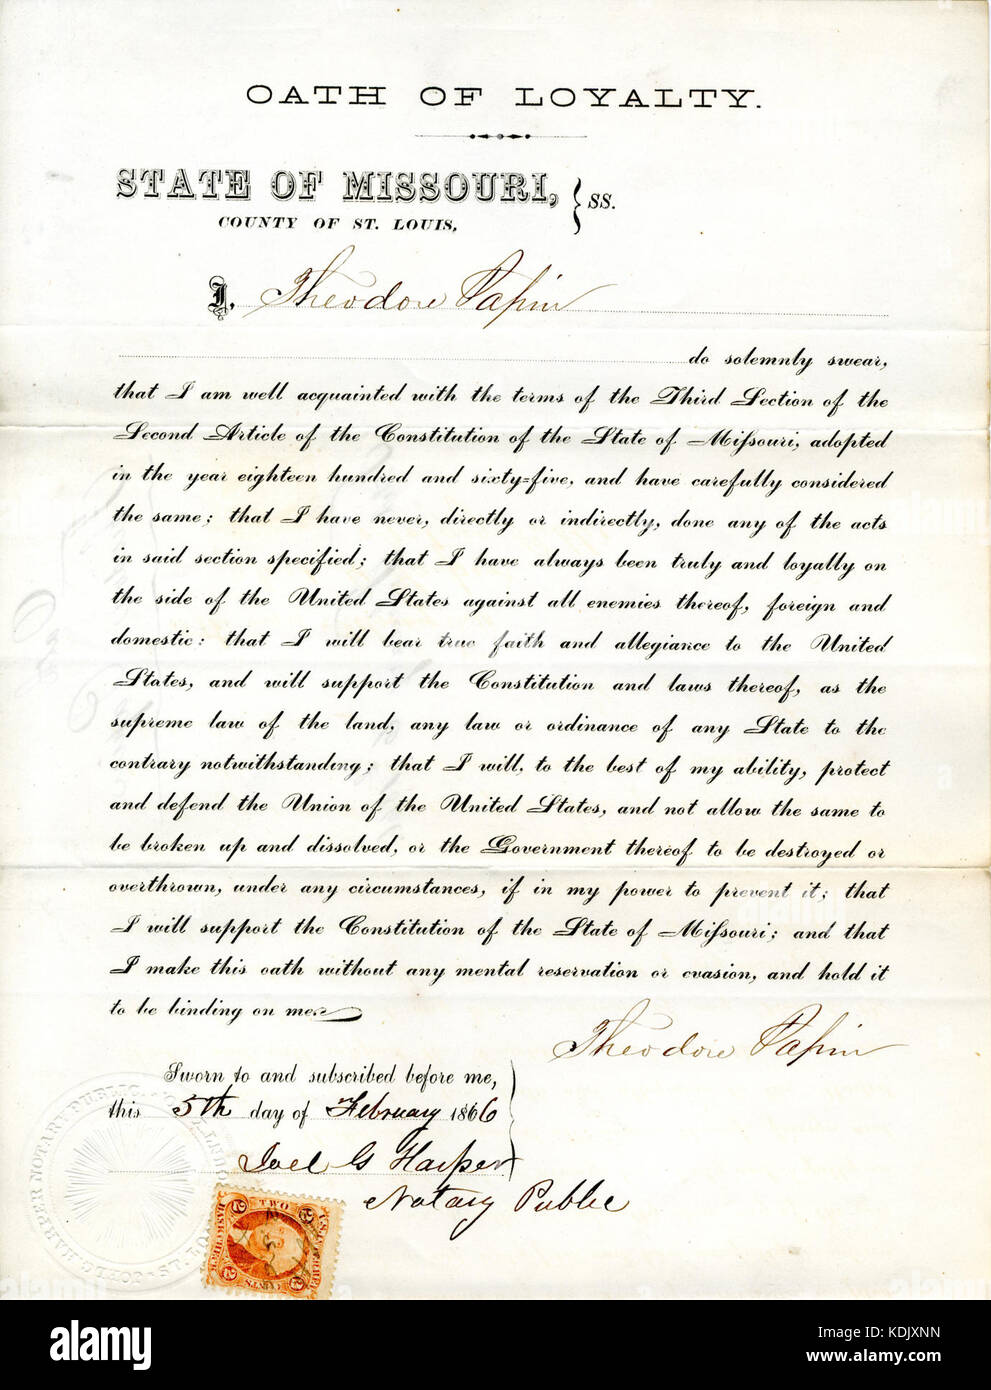 OATH OF LOYALTY.
STATE OF MISSOURI, } SS.
COUNTY OF ST. LOUIS,
I, Theodore Papin
do solemnly swear,
that I am well acquainted with the terms of the Third Section of the
Second Article of the Constitution of the State of Missouri, adopted
in the year eighteen hundred and sixty=five, and have carefully considered
the same; that I have never, directly or indirectly, done any of the acts
in said section specified; that I have always been truly and loyally on
the side of the United States against all enemies thereof, foreign and
domestic: that I will bear true faith and allegiance to the United
States, and will support the Constitution and laws thereof, as the
supreme law of the land, any law or ordinance of any State to the
contrary notwithstanding; that I will, to the best of my ability, protect
and defend the Union of the United States, and not allow the same to
be broken up and dissolved, or the Government thereof to be destroyed or
overthrown, under any circumstances, if in my power to prevent it; that
I will support the Constitution of the State of Missouri; and that
I make this oath without any mental reservation or evasion, and hold it
to be binding on me.
Theodore Papin
Sworn to and subscribed before me,
this 5th day of February 1866
Joel G Harper
Notary Public
JOEL G. HARPER NOTARY PUBLIC
ST. LOUIS
TWO
2
CENTS
alamy
Image ID: KDJXNN
www.alamy.com